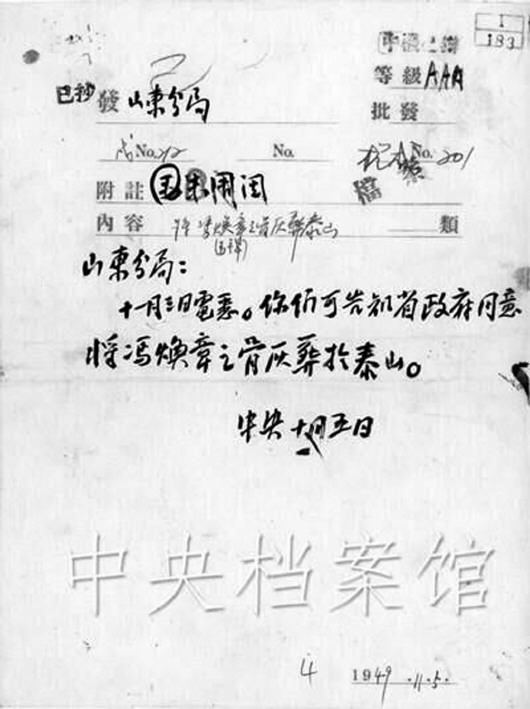 1
183
等級 AAA
已抄 發 山東分局 批發
No. 212 No. No. 201
附註 檔案
內容 將馮煥章之骨灰葬泰山 類
山東分局：
十一月三日電悉。你们可告知省政府同意
将冯煥章之骨灰葬於泰山。
中央 十一月五日
中央档案馆
4 1949.11.5.